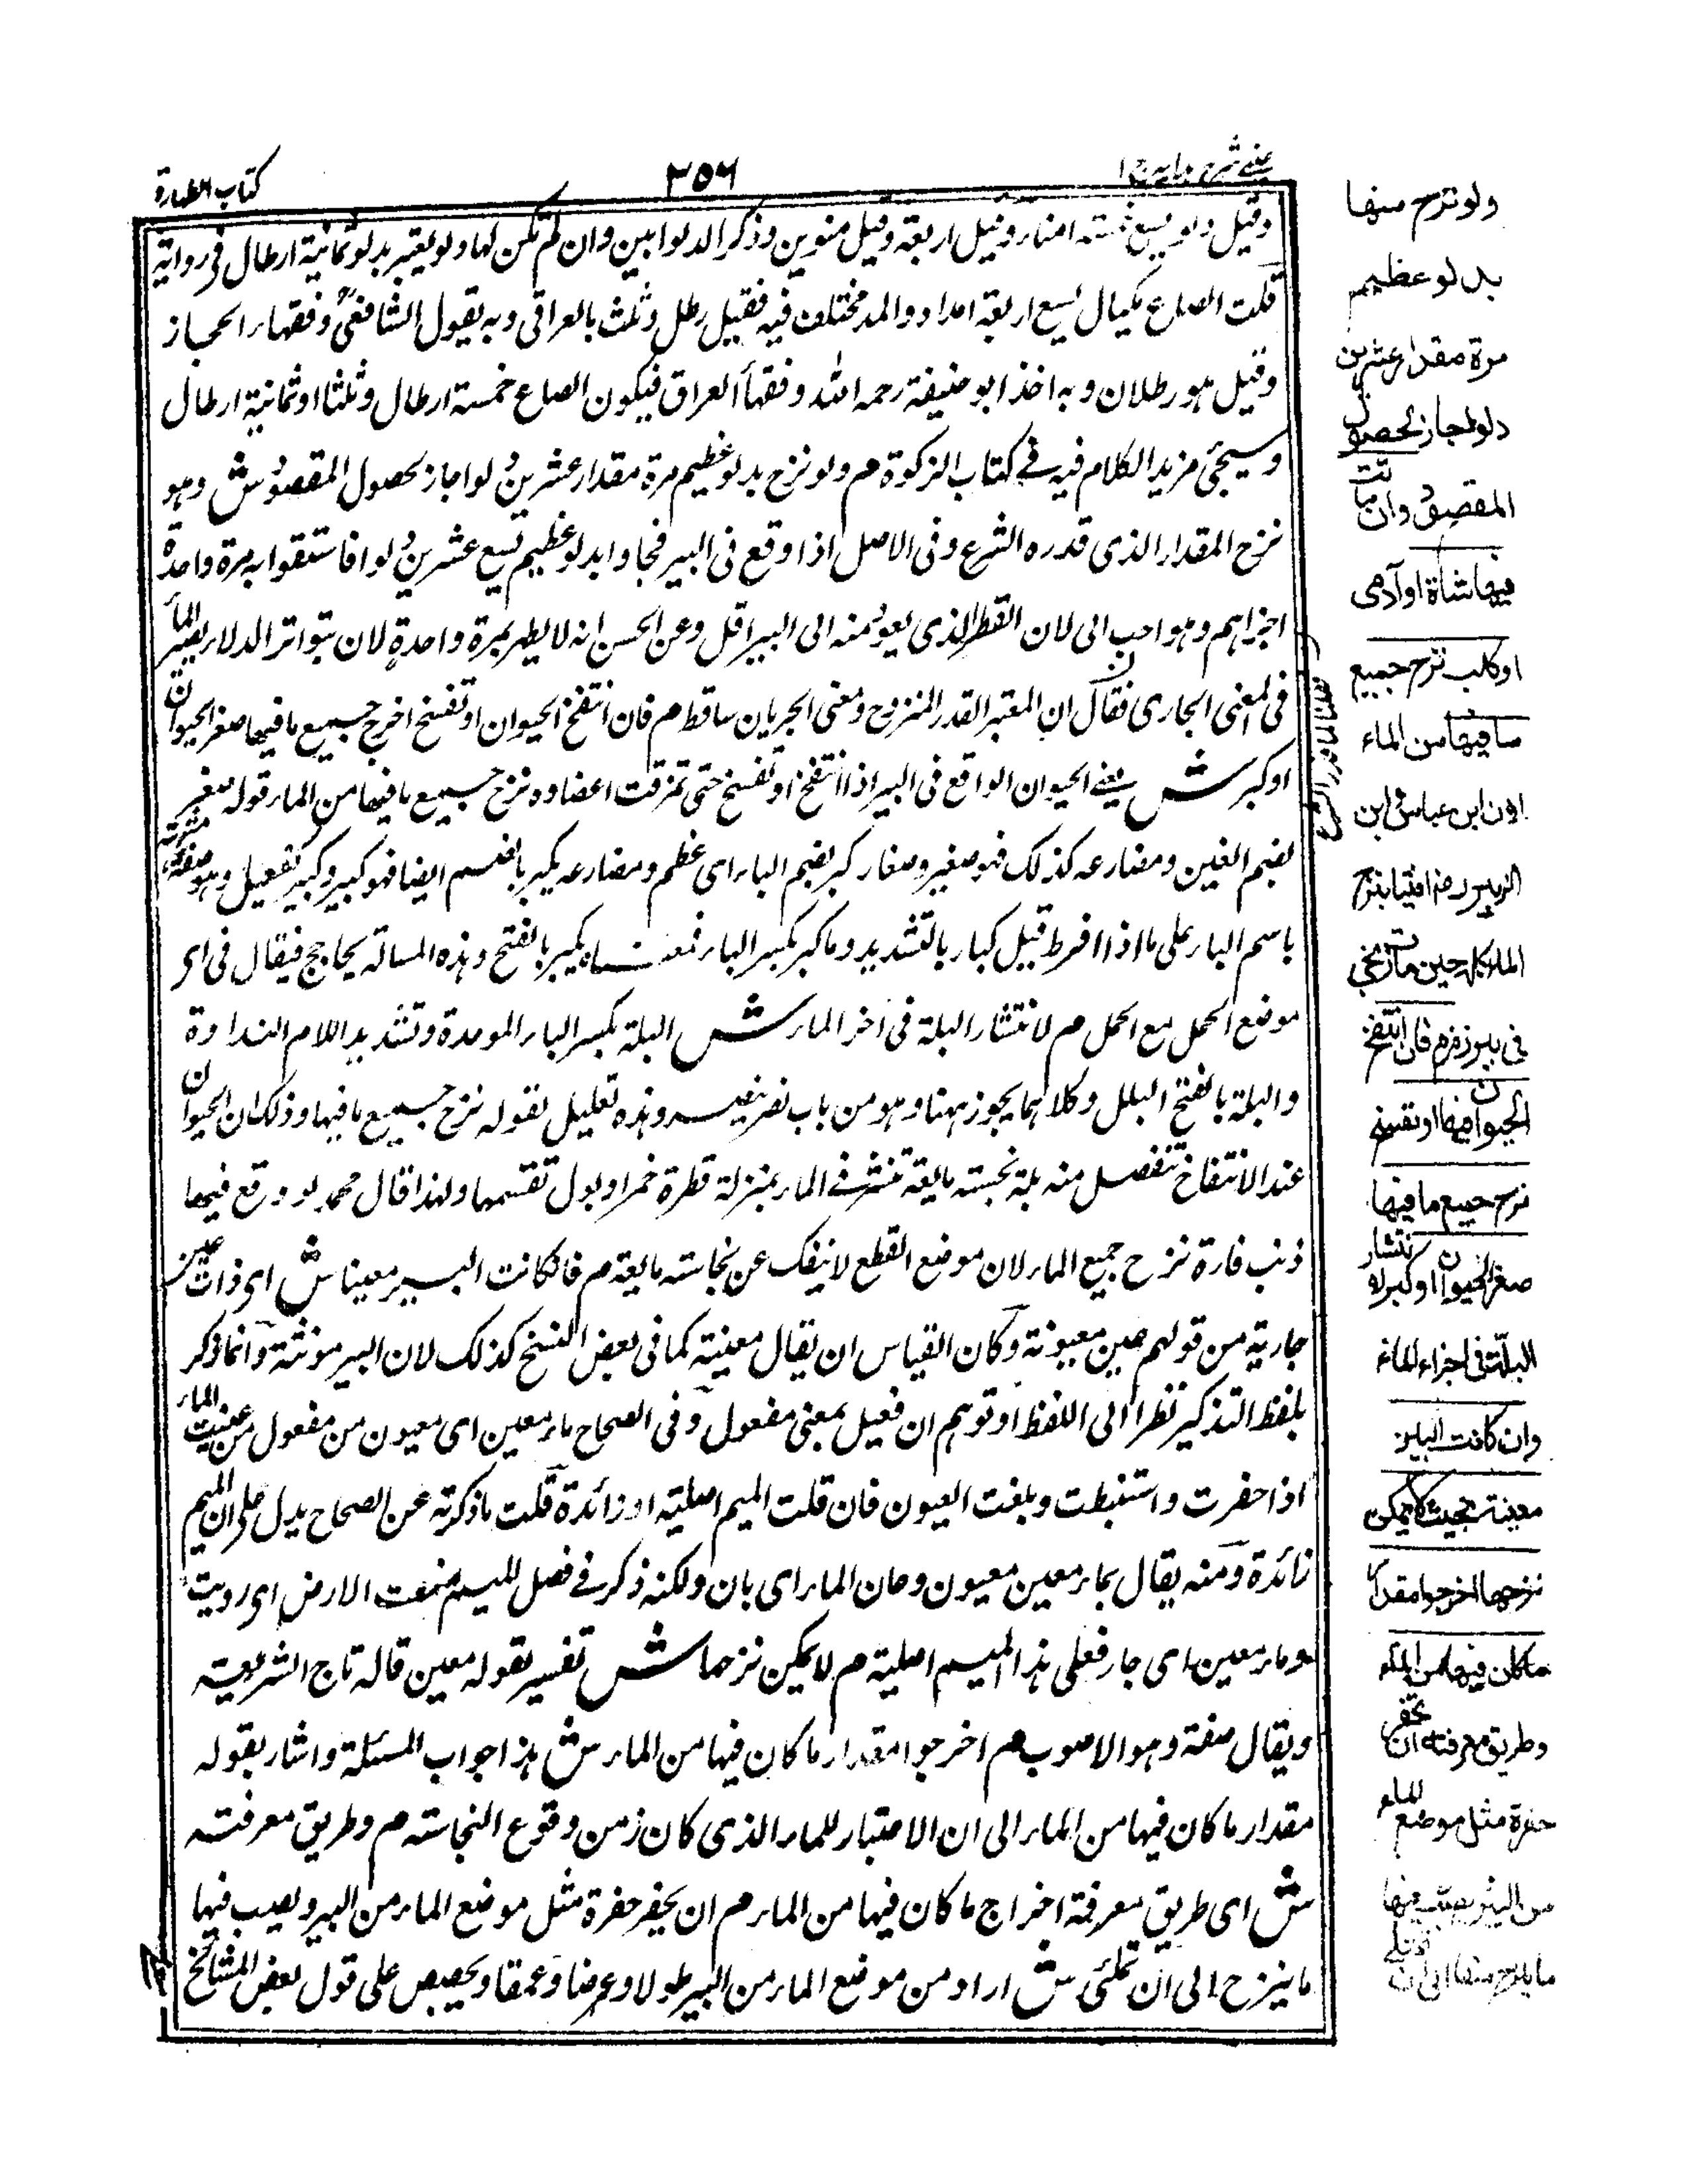 كتاب الطهارة
٣٥٦
عينى شرح هدايه ج ١
وقيل دلو يسع خمسة امناء وقيل اربعة وقيل منوين وذكر الدلو ابين وان لم تكن لها دلو يعتبر بدلو ثمانية ارطال فى رواية
قلت الصاع مكيال يسع اربعة امداد والمد مختلف فيه فقيل رطل وثلث بالعراقى وبه يقول الشافعىؒ وفقهاء الحجاز
وقيل هو رطلان وبه اخذ ابو حنيفة رحمه الله وفقهأ العراق فيكون الصاع خمسة ارطال وثلثا او ثمانية ارطال
وسيجئ مزيد الكلام فيه فى كتاب الزكوة م ولو نزح بدلو عظيم مرة مقدار عشرين دلوا جاز لحصول المقصود ش وهو
نزح المقدار الذى قدره الشرع وفى الاصل اذا وقع فى البير فجاوا بدلو عظيم تسع عشرين دلوا فاستقوا به مرة واحدة
اجزاهم وهو احب الى لان القطر الذى يعود منه الى البير اقل وعن الحسن انه لا يطهر بمرة واحدة لان بتواتر الدلاء يصير المأ
فى المعنى الجارى فقال ان المعتبر القدر المنزوح ومعنى الجريان ساقط م فان انتفخ الحيوان او تفسخ اخرج جميع ما فيها صغر الحيوان
او كبر ش يعنى الحيوان الواقع فى البير اذا انتفخ او تفسخ حتى تمزقت اعضاوه نزح جميع ما فيها من الماء قوله صغير
بضم الغين ومضارعه كذلك فهو صغير وصغار كبر بضم الباء اى عظم ومضارعه يكبر بالضم ايضا فهو كبير وكبير كفعيل وهو صفة مشبهة
باسم الباء على ما اذا افرط قيل كبار بالتشديد وما كبر بكسر الباء فمعناه يكبر بالفتح وهذه المسالة يحاجج فيقال فى اى
موضع الحمل مع الحمل م لانتشار البلة فى اخر الماء ش البلة بكسر الباء الموحدة وتشديد اللام النداوة
والبلة بالفتح البلل وكلاهما يجوز ههنا وهو من باب نصر ينصر وهذه تعليل لقوله نزح جميع ما فيها وذلك ان الحيوان
عند الانتفاخ تنفصل منه بلة نجسته مايعة تنشر فى الماء بمنزلة قطرة خمر او بول تقسمها ولهذا قال محمد لو وقع فيها
ذنب فارة نزح جميع الماء لان موضع القطع لا ينفك عن نجاسته مايعة م فان كانت البير معينا ش اى ذات عين
جارية من قولهم عين معيونة وكان القياس ان يقال معينة كما فى بعض النسخ كذلك لان البير مونثة وانما ذكر
بلفظ التذكير نظرا الى اللفظ او توهم ان فعيل بمعنى مفعول وفى الصحاح ماء معين اى معيون من مفعول من عينت الماء
اذا حفرت واستنبطت وبلغت العيون فان قلت الميم اصلية او زائدة قلت ما ذكرته عن الصحاح يدل على ان الميم
زائدة ومنه يقال ماء معين معيون وعان الماء اى بان ولكنه ذكر فى فصل الميم معنت الارض اى رويت
وماء معين اى جار فعلى هذا الميم اصلية م لا يمكن نزحها ش تفسير لقوله معين قاله تاج الشريعة
ويقال صفة وهو الاصوب م اخرجوا مقدار ما كان فيها من الماء ش هذا جواب المسئلة واشار بقوله
مقدار ما كان فيها من الماء الى ان الاعتبار للماء الذى كان زمن وقوع النجاسته م وطريق معرفته
ش اى طريق معرفة اخراج ما كان فيها من الماء م ان يحفر حفرة مثل موضع الماء من البير ويصب فيها
ما ينزح الى ان تملئ ش اراد من موضع الماء من البير طولا وعرضا وعمقا ويجصص على قول بعض المشائخ
ولو نزح منها
بدلو عظيم
مرة مقدار عشرين
دلوا جاز لحصول
المقصود وان ماتت
فيها شاة او آدمى
او كلب نزح جميع
ما فيها من الماء
لان ابن عباس وابن
الزبير رض افتيا بنزح
الماء كله حين مات زنجى
فى بير زمزم فان انتفخ
الحيوان فيها او تفسخ
نزح جميع ما فيها
صغر الحيوان او كبر لانتشار
البلة فى اجزاء الماء
وان كانت البير
معينا بحيث لا يمكن
نزحها اخرجوا مقدار
ما كان فيها من الماء
وطريق معرفته ان يحفر
حفرة مثل موضع الماء
من البئر يصب فيها
ما ينزح منها الى ان تمتلى